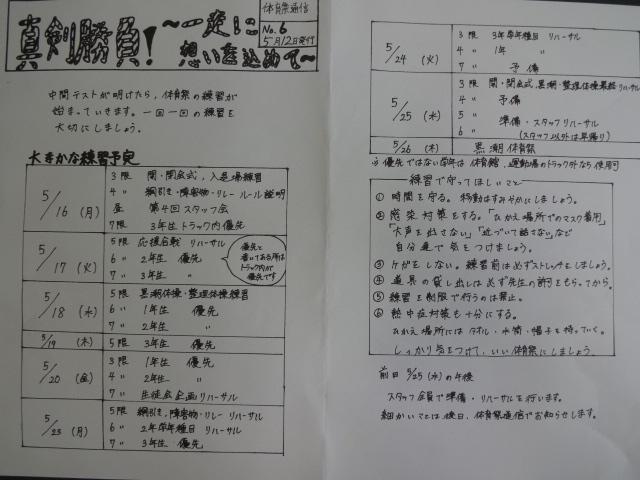 真剣勝負!
～一走に
想いを込めて～
体育祭通信
No.6
5月12日発行
中間テストが明けたら、体育祭の練習が
始まっていきます。一回一回の練習を
大切にしましょう。
大まかな練習予定
5/16 (月)
3限 開・閉会式,入退場練習
4〃 綱引き・障害物・リレー ルール説明
昼 第4回スタッフ会
7限 3年生トラック内優先
5/17 (火)
5限 応援合戦 リハーサル
6〃 2年生 優先
7〃 3年生 〃
優先と
書いてある所は
トラック内が
優先です
5/18 (水)
5限 黒潮体操・整理体操練習
6〃 1年生 優先
7〃 2年生 〃
5/19 (木)
5限 3年生 優先
5/20 (金)
3限 1年生 優先
4〃 2年生 〃
7〃 生徒会企画リハーサル
5/23 (月)
5限 綱引き,障害物・リレー リハーサル
6〃 2年学年種目 リハーサル
7〃 3年生 優先
5/24 (火)
3限 3年学年種目 リハーサル
4〃 1年 〃
7〃 予備
5/25 (水)
3限 開・閉会式,黒潮・整理体操最終リハーサル
4〃 予備
5〃 準備・スタッフリハーサル
6〃 (スタッフ以外は早帰り)
5/26 (木)
黒潮体育祭
※優先ではない学年は体育館、運動場のトラック外なら使用可
練習で守ってほしいこと
① 時間を守る。移動はすみやかにしましょう。
② 感染対策をする。「ひかえ場所でのマスク着用」
「大声を出さない」「近づいて話さない」など
自分達で気をつけましょう。
③ ケガをしない。練習前は必ずストレッチをしましょう。
④ 道具の貸し出しは必ず先生の許可をもらってから。
⑤ 練習を制服で行うのは禁止。
⑥ 熱中症対策も十分にする。
ひかえ場所にはタオル・水筒・帽子を持っていく。
しっかり気をつけて、いい体育祭にしましょう。
前日 5/25(水)の午後
スタッフ全員で準備・リハーサルを行います。
細かいことは後日、体育祭通信でお知らせします。